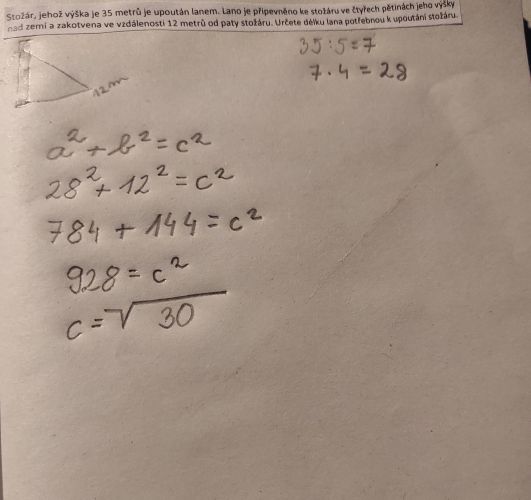 Stožár, jehož výška je 35 metrů je upoután lanem. Lano je připevněno ke stožáru ve čtyřech pětinách jeho výšky
nad zemí a zakotvena ve vzdálenosti 12 metrů od paty stožáru. Určete délku lana potřebnou k upoutání stožáru.
35:5=7
7·4=28
12m
a²+b²=c²
28²+12²=c²
784+144=c²
928=c²
c=√30